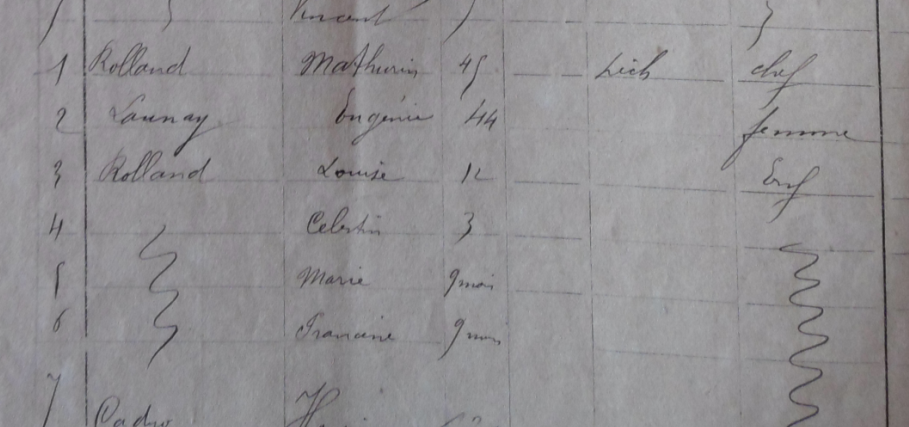 Vincent
1 Rolland Mathurin 45 chef
2 Launay Eugénie 44 femme
3 Rolland Louise 12 Enf
4 Celestin 3
5 Marie 9 mois
6 Francine 9 mois
7 Cadro